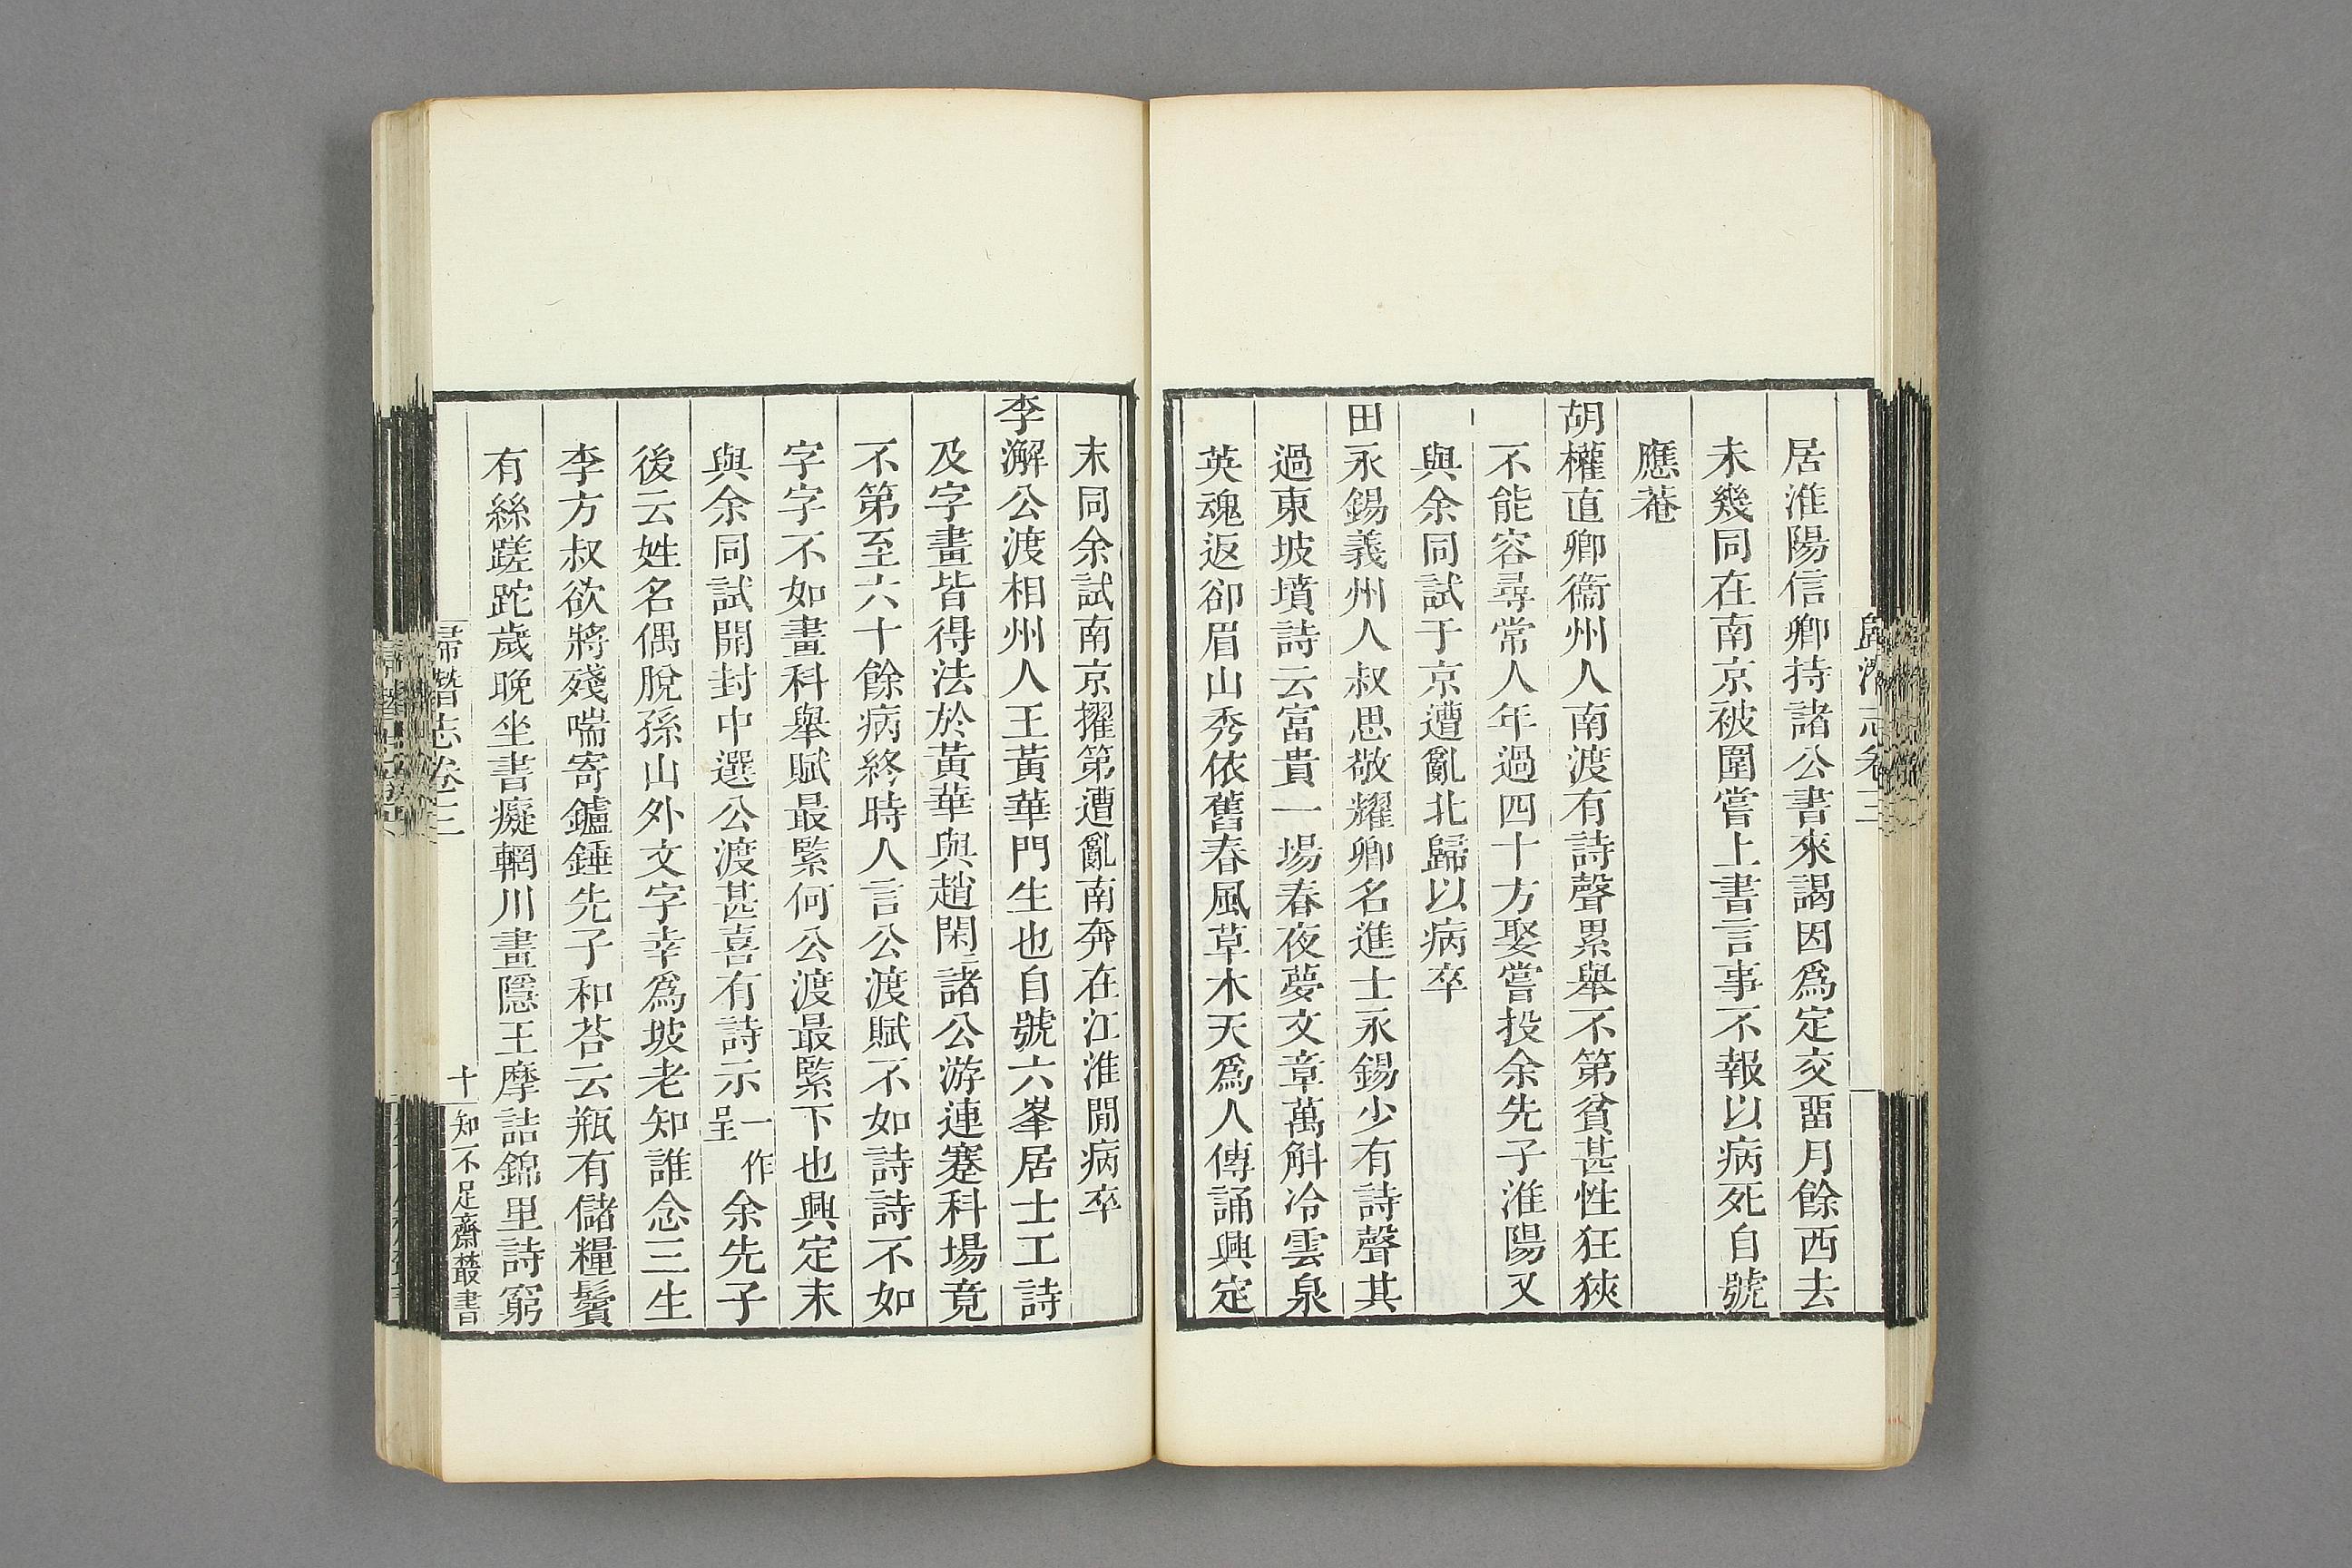 歸潛志卷三
居淮陽信卿持諸公書來謁因爲定交畱月餘西去
未幾同在南京被圍嘗上書言事不報以病死自號
應菴
胡權直卿衞州人南渡有詩聲累舉不第貧甚性狂狹
不能容尋常人年過四十方娶嘗投余先子淮陽又
與余同試于京遭亂北歸以病卒
田永錫義州人叔思敬耀卿名進士永錫少有詩聲其
過東坡墳詩云富貴一場春夜夢文章萬斛冷雲泉
英魂返卻眉山秀依舊春風草木天爲人傳誦興定
末同余試南京擢第遭亂南奔在江淮閒病卒
李澥公渡相州人王黃華門生也自號六峯居士工詩
及字畫皆得法於黃華與趙閑諸公游連蹇科場竟
不第至六十餘病終時人言公渡賦不如詩詩不如
字字不如畫科舉賦最緊何公渡最緊下也興定末
與余同試開封中選公渡甚喜有詩示一作呈余先子
後云姓名偶脫孫山外文字幸爲坡老知誰念三生
李方叔欲將殘喘寄鑪錘先子和荅云瓶有儲糧鬢
有絲蹉跎歲晚坐書癡輞川畫隱王摩詰錦里詩窮
歸潛志卷三
十
知不足齋叢書